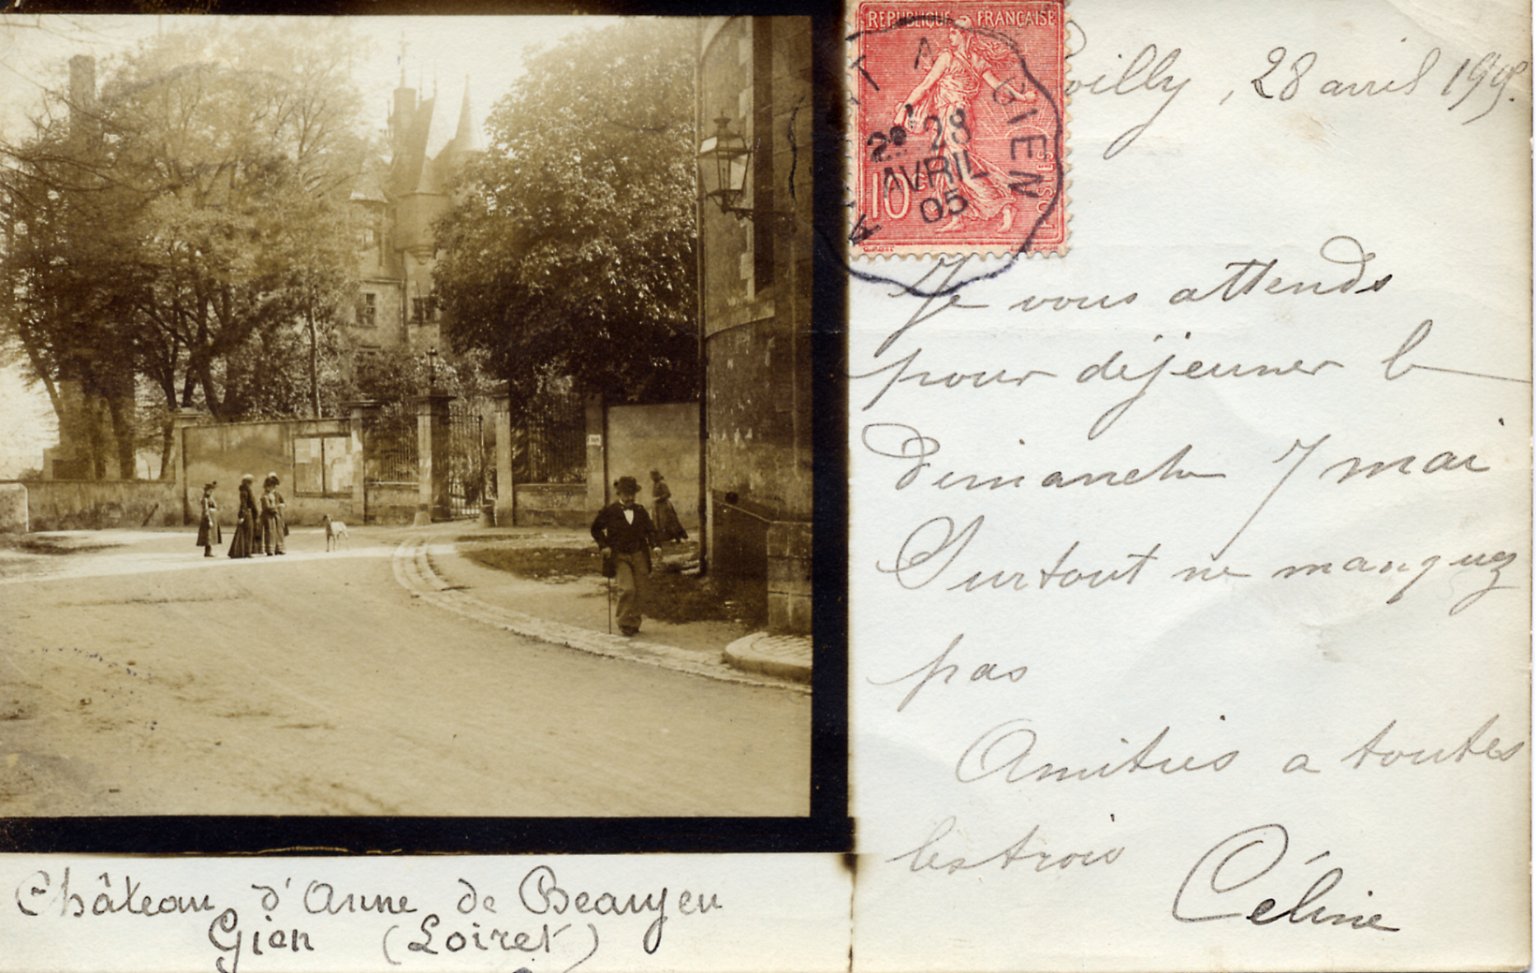 RÉPUBLIQUE FRANÇAISE
A GIEN
28
AVRIL
05
10
28 avril 1905.
Je vous attends
pour déjeuner le
Dimanche 7 mai
Surtout ne manquez
pas
Amitiés a toutes
les trois
Céline
Château d'Anne de Beaujeu
Gien (Loiret)